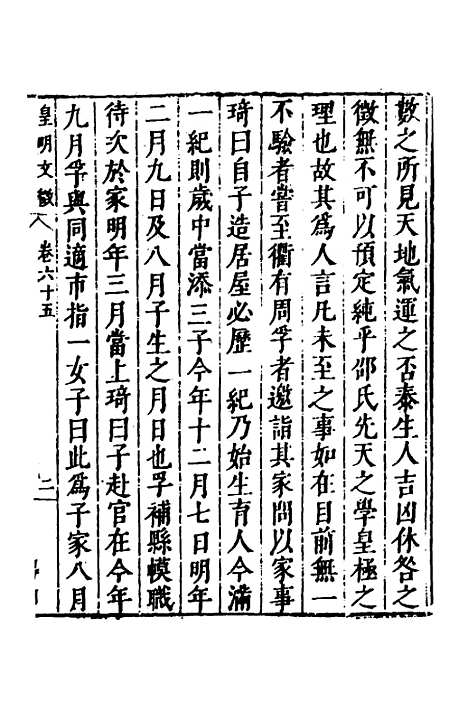 數之所見天地氣運之否泰生人吉凶休咎之
徵無不可以預定純乎邵氏先天之學皇極之
理也故其爲人言凡未至之事如在目前無一
不驗者嘗至衢有周孚者邀詣其家問以家事
琦曰自子造居屋必歷一紀乃始生育人今滿
一紀則歲中當添三子今年十二月七日明年
二月九日及八月子生之月日也孚補縣幙職
待次於家明年三月當上琦曰子赴官在今年
九月孚與同適市指一女子曰此爲子家八月
皇明文徵 卷六十五 二